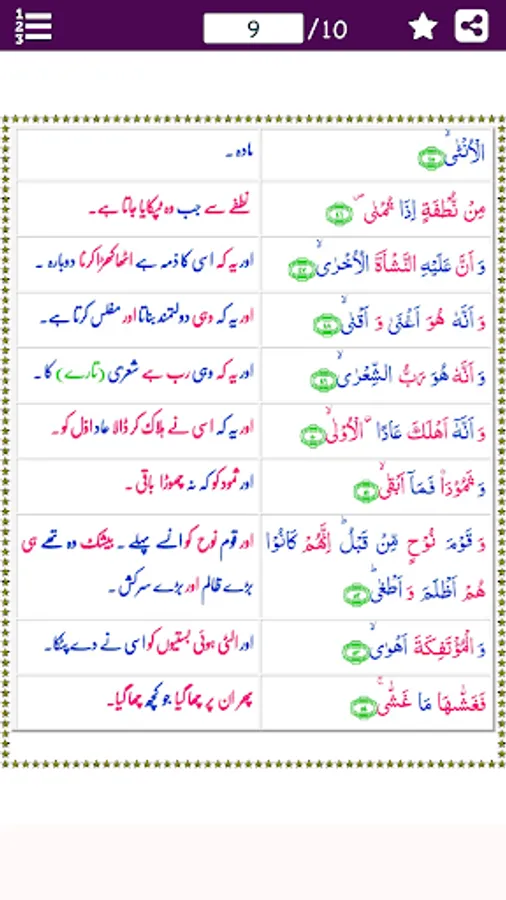 1
2
3
9 /10
الْاُنْثٰىۙ ۴۵
مادہ ۔
مِنْ نُّطْفَةٍ اِذَا تُمْنٰى ۪ ۴۶
نطفے سے جب وہ ٹپکایا جاتا ہے۔
وَ اَنَّ عَلَيْهِ النَّشْاَةَ الْاُخْرٰىۙ ۴۷
اور یہ کہ اسی کا ذمہ ہے اٹھا کھڑا کرنا دوبارہ ۔
وَ اَنَّهٗ هُوَ اَغْنٰى وَ اَقْنٰىۙ ۴۸
اور یہ کہ وہی دولتمند بناتا اور مفلس کرتا ہے۔
وَ اَنَّهٗ هُوَ رَبُّ الشِّعْرٰىۙ ۴۹
اور یہ کہ وہی رب ہے شعری (تارے) کا ۔
وَ اَنَّهٗۤ اَهْلَكَ عَادًا ا۟لْاُوْلٰىۙ ۵۰
اور یہ کہ اسی نے ہلاک کر ڈالا عاد اوّل کو۔
وَ ثَمُوْدَا۟ فَمَاۤ اَبْقٰىۙ ۵۱
اور ثمود کو کہ نہ چھوڑا باقی ۔
وَ قَوْمَ نُوْحٍ مِّنْ قَبْلُؕ اِنَّهُمْ كَانُوْا
هُمْ اَظْلَمَ وَ اَطْغٰىؕ ۵۲
اور قوم نوح کو انسے پہلے ۔ بیشک وہ تھے ہی
بڑے ظالم اور بڑے سرکش ۔
وَ الْمُؤْتَفِكَةَ اَهْوٰىۙ ۵۳
اور الٹی ہوئی بستیوں کو اسی نے دے پٹکا۔
فَغَشّٰىهَا مَا غَشّٰىۚ ۵۴
پھر ان پر چھا گیا جو کچھ چھا گیا۔